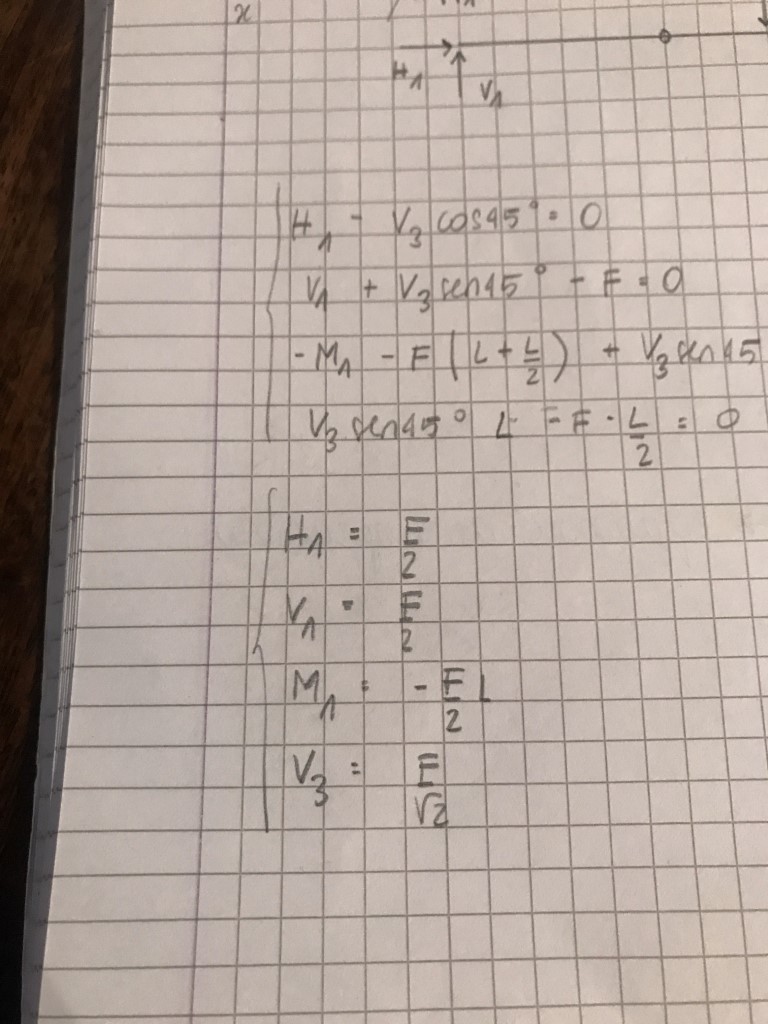 x
H₁ V₁
H₁ - V₃ cos45° = 0
V₁ + V₃ sen45° - F = 0
- M₁ - F (L + L/2) + V₃ sen45
V₃ sen45° L - F · L/2 = 0
H₁ = F/2
V₁ = F/2
M₁ = - F/2 L
V₃ = F/√2